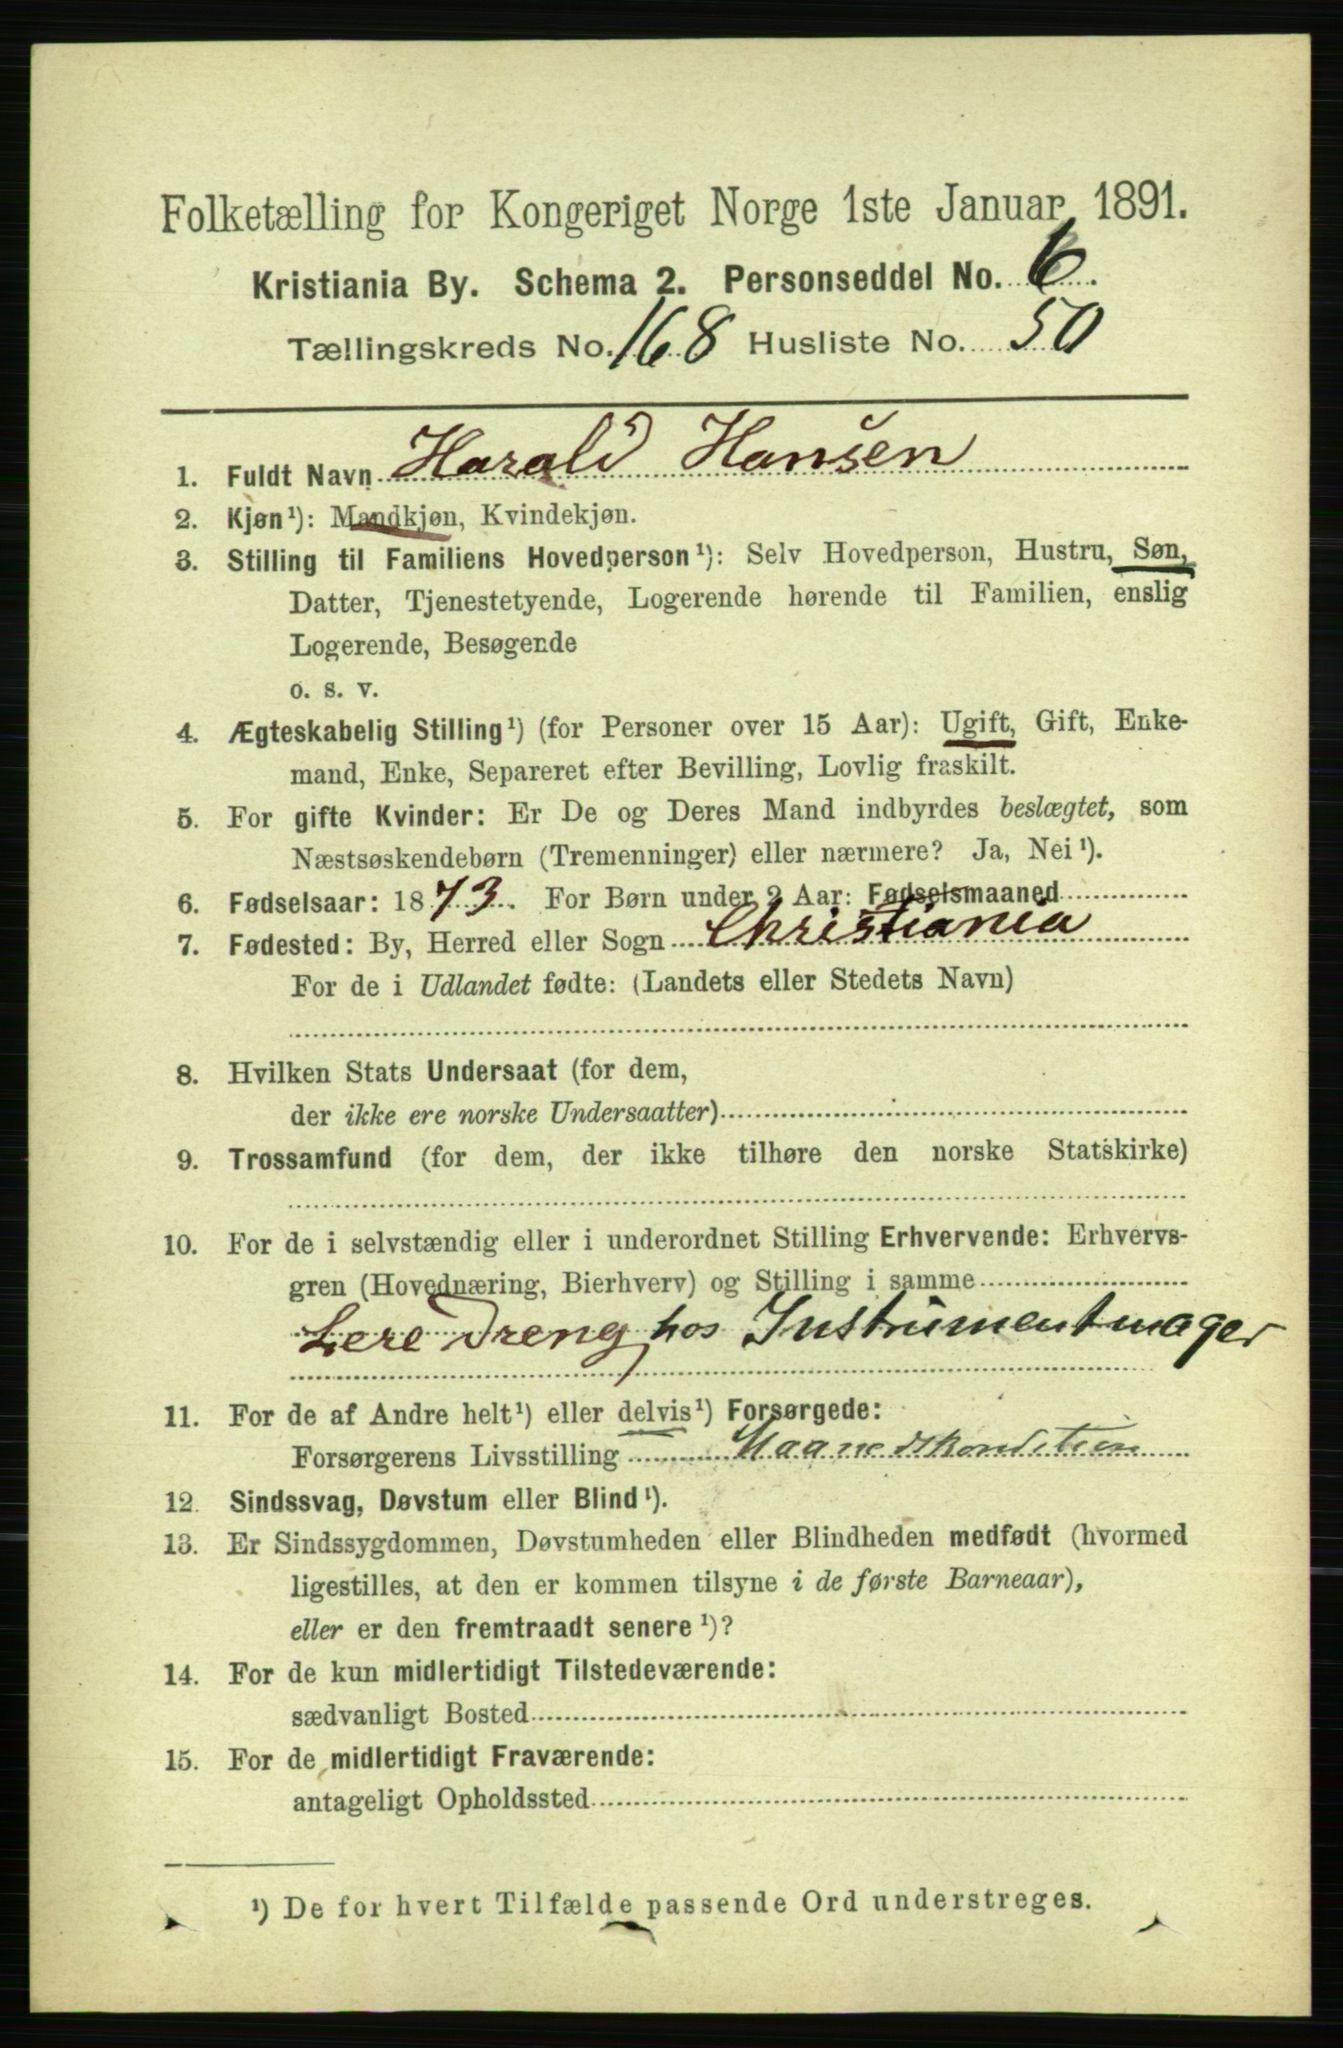 Folketælling for Kongeriget Norge 1ste Januar 1891.
Kristiania By. Schema 2. Personseddel No. 6.
Tællingskreds No. 168 Husliste No. 50
1. Fuldt Navn Harald Hansen
2. Kjøn¹): Mandkjøn, Kvindekjøn.
3. Stilling til Familiens Hovedperson¹): Selv Hovedperson, Hustru, Søn,
Datter, Tjenestetyende, Logerende hørende til Familien, enslig
Logerende, Besøgende
o. s. v.
4. Ægteskabelig Stilling¹) (for Personer over 15 Aar): Ugift, Gift, Enke-
mand, Enke, Separeret efter Bevilling, Lovlig fraskilt.
5. For gifte Kvinder: Er De og Deres Mand indbyrdes beslægtet, som
Næstsøskendebørn (Tremenninger) eller nærmere? Ja, Nei¹).
6. Fødselsaar: 1873. For Børn under 2 Aar: Fødselsmaaned
7. Fødested: By, Herred eller Sogn Christiania
For de i Udlandet fødte: (Landets eller Stedets Navn)
8. Hvilken Stats Undersaat (for dem,
der ikke ere norske Undersaatter)
9. Trossamfund (for dem, der ikke tilhøre den norske Statskirke)
10. For de i selvstændig eller i underordnet Stilling Erhvervende: Erhvervs-
gren (Hovednæring, Bierhverv) og Stilling i samme
Lere Dreng hos Instrumentmager
11. For de af Andre helt¹) eller delvis¹) Forsørgede:
Forsørgerens Livsstilling Maanedskondition
12. Sindssvag, Døvstum eller Blind¹).
13. Er Sindssygdommen, Døvstumheden eller Blindheden medfødt (hvormed
ligestilles, at den er kommen tilsyne i de første Barneaar),
eller er den fremtraadt senere¹)?
14. For de kun midlertidigt Tilstedeværende:
sædvanligt Bosted
15. For de midlertidigt Fraværende:
antageligt Opholdssted
¹) De for hvert Tilfælde passende Ord understreges.